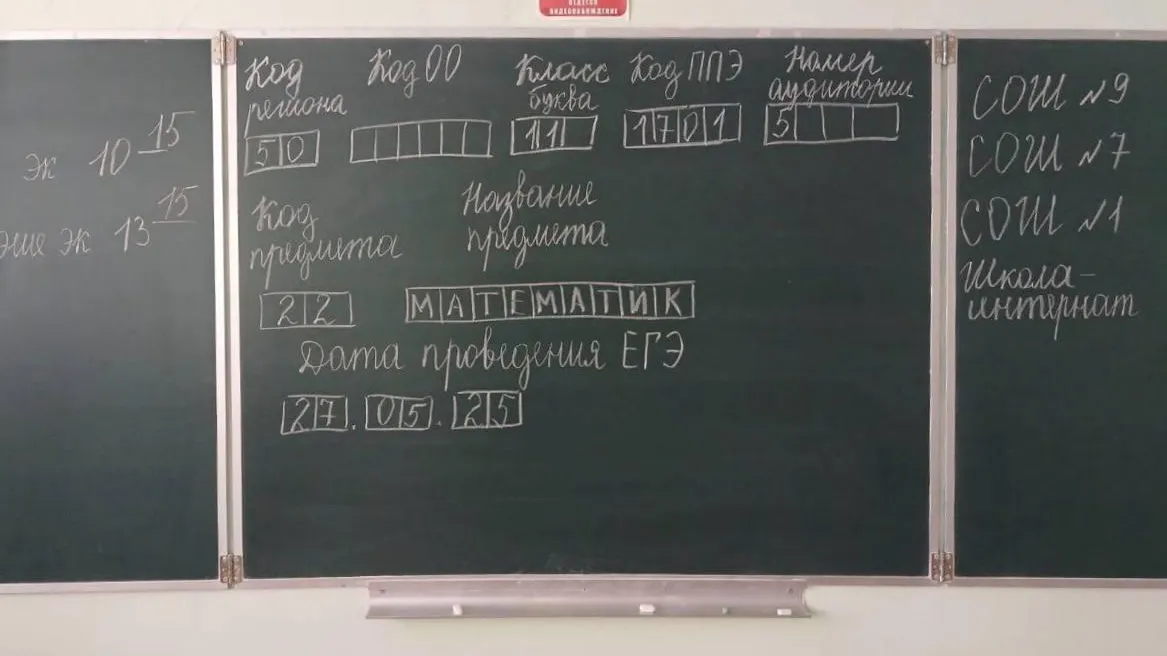 ВЕДЕТСЯ
ВИДЕОНАБЛЮДЕНИЕ
эк 10 15
эк 13 15
Код региона
50
Код ОО
Класс буква
11
Код ППЭ
1701
Номер аудитории
5
Код предмета
22
Название предмета
МАТЕМАТИК
Дата проведения ЕГЭ
27.05.25
СОШ №9
СОШ №7
СОШ №1
Школа-
интернат